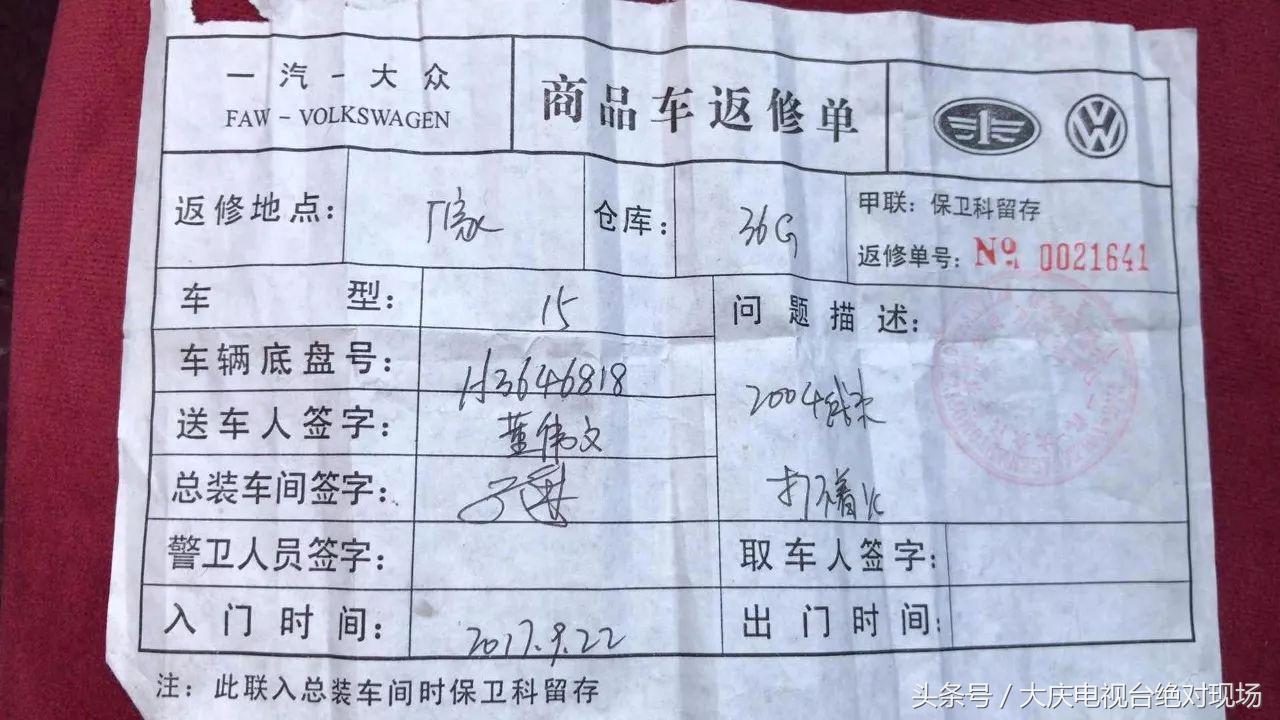 一汽-大众
FAW-VOLKSWAGEN
商品车返修单
返修地点：
仓库：36G
甲联：保卫科留存
返修单号：No 0021641
车型：15
问题描述：
车辆底盘号：H3646818
2004 结束
送车人签字：董伟文
打不着火
总装车间签字：
警卫人员签字：
取车人签字：
入门时间：2017.9.22
出门时间：
注：此联入总装车间时保卫科留存
头条号／大庆电视台绝对现场